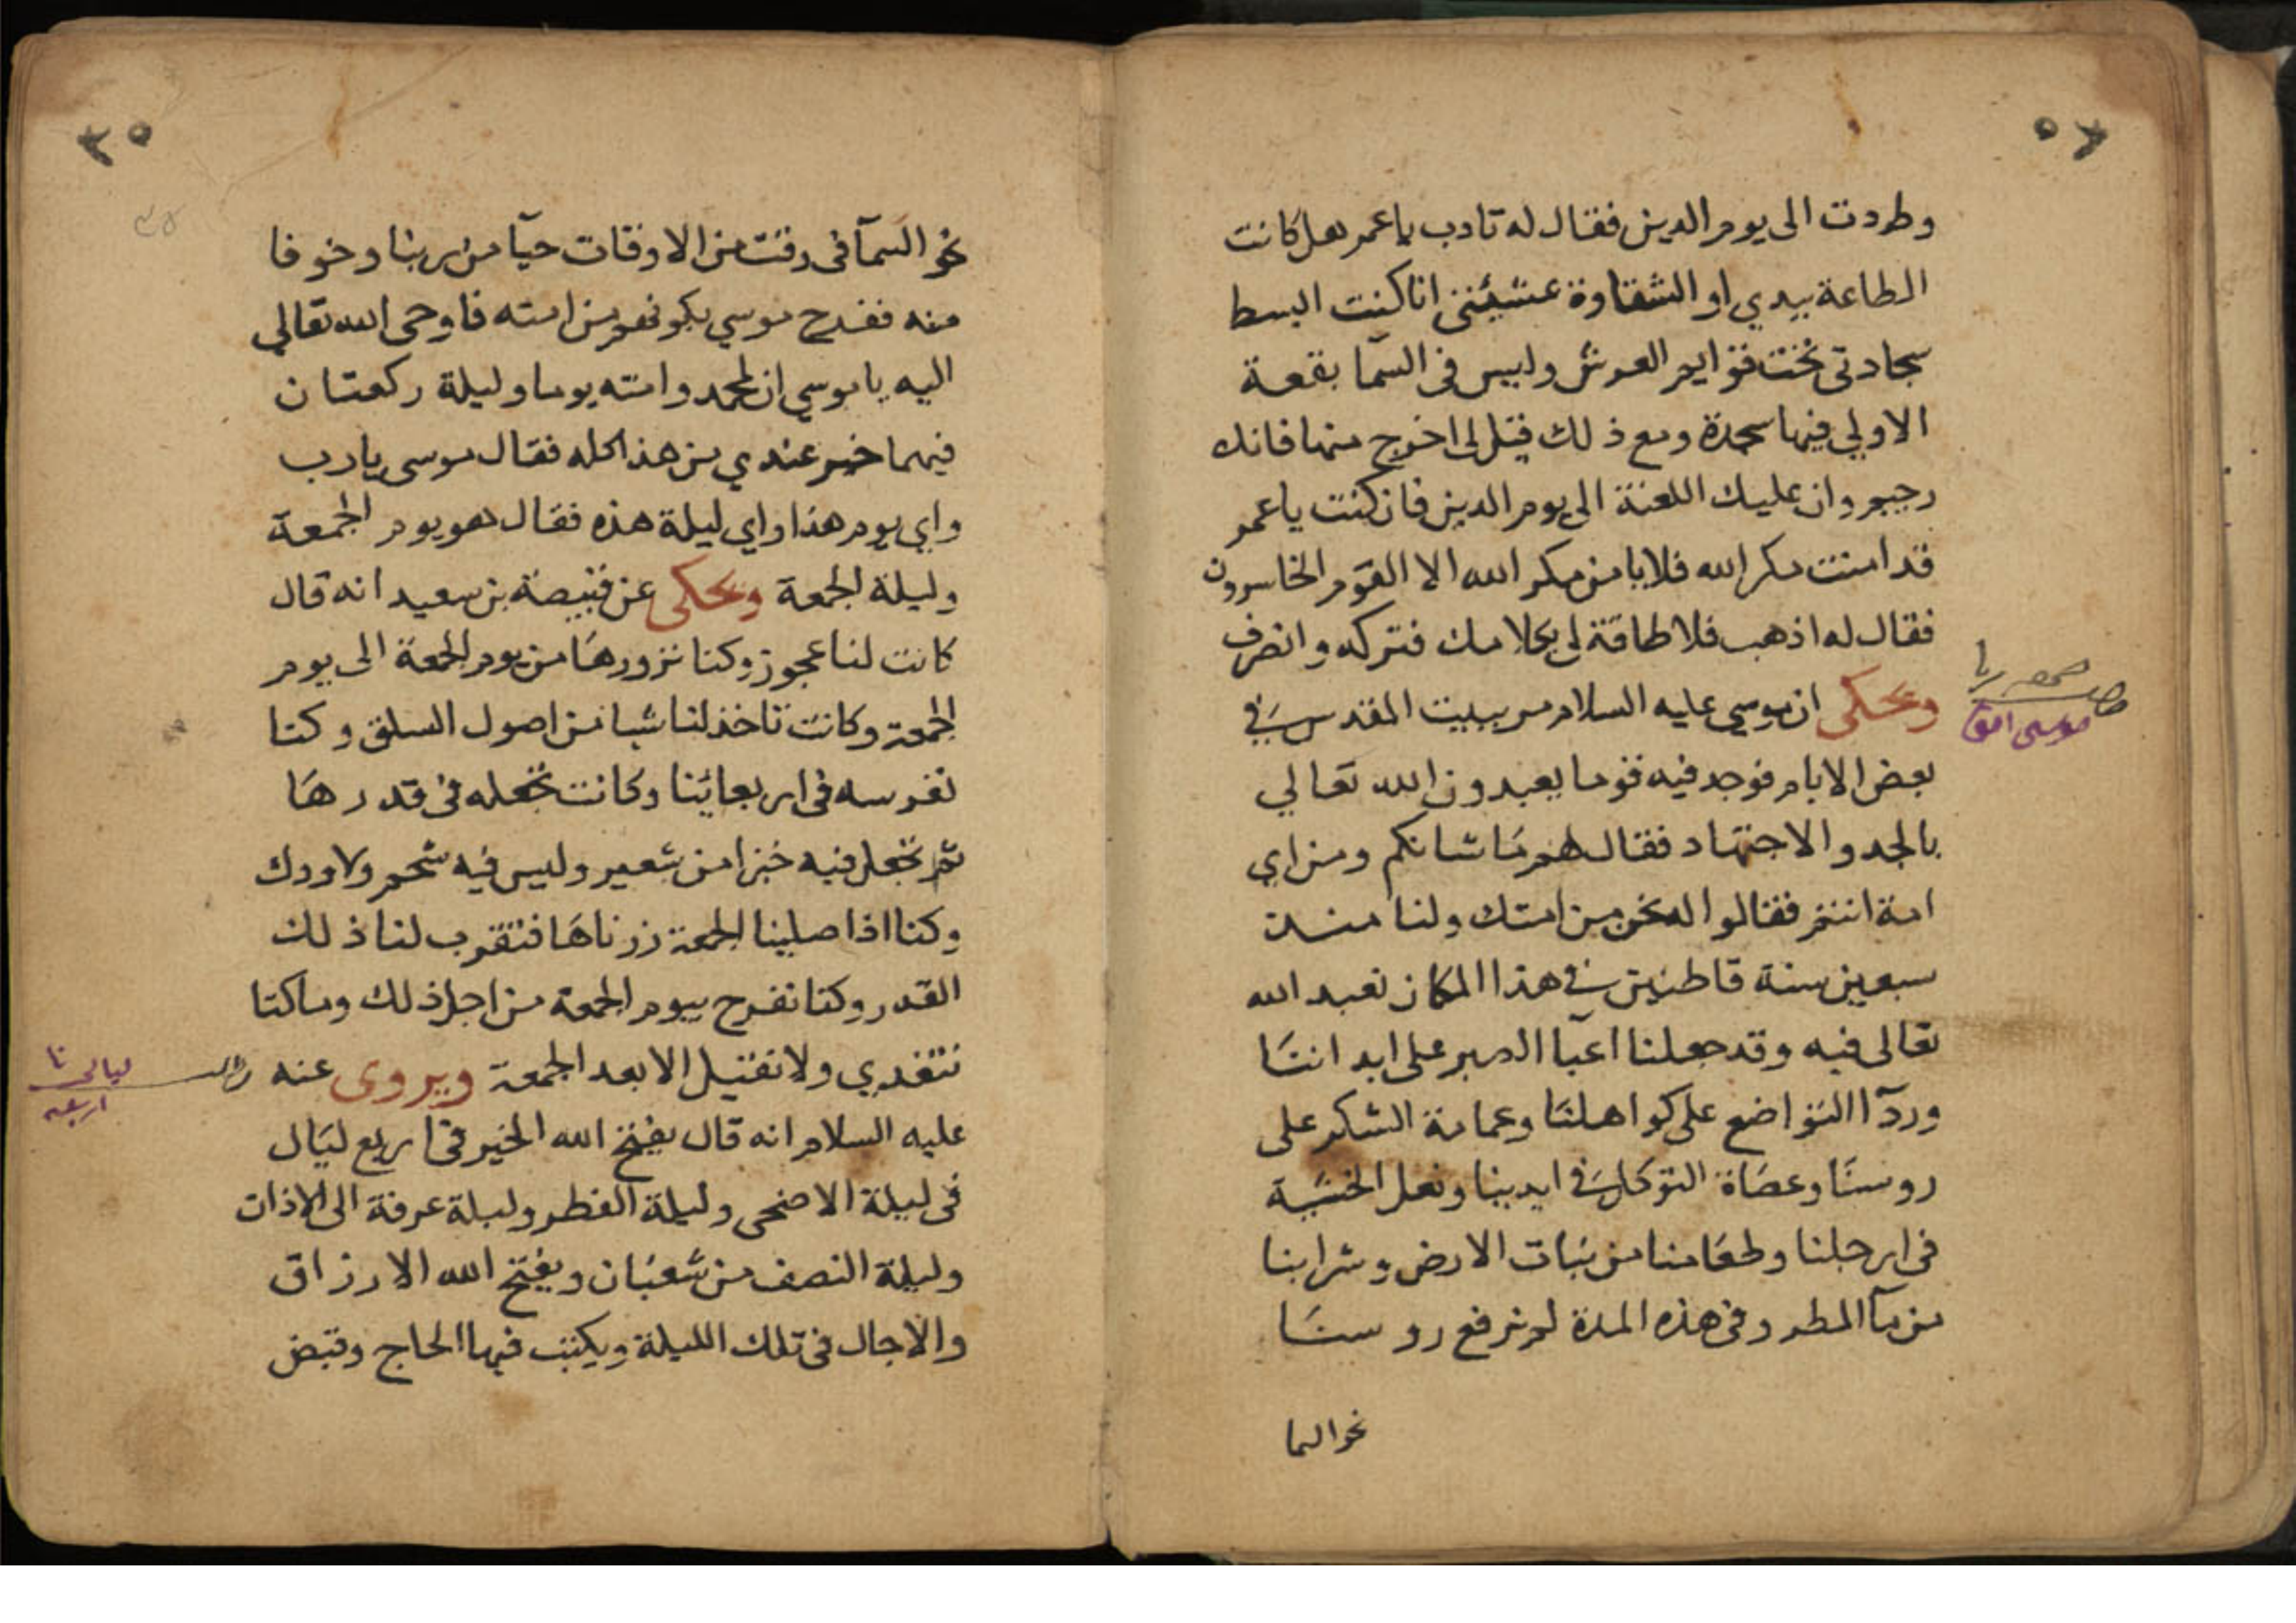 وطردت الى يوم الدين فقال له تادب ياعمر هل كانت
الطاعة بيدي او الشقاوة عشيئتي انا كنت ابسط
سجادتي تحت قوايم العرش وليس في السما بقعة
الاولي فيها سجدة ومع ذلك قيل لى اخرج منها فانك
رجيم وان عليك اللعنة الى يوم الدين فان كنت ياعمر
قد امنت مكر الله فلا يامن مكر الله الا القوم الخاسرون
فقال له اذهب فلا طاقة لى بكلامك فتركه وانصرف
ويحكى ان موسي عليه السلام مر ببيت المقدس في
بعض الايام فوجد فيه قوما يعبدون الله تعالي
بالجد والاجتهاد فقال لهم ما شانكم ومن اي
امة انتم فقالوا له نحن من امتك ولنا منذ
سبعين سنة قاطنين في هذا المكان نعبد الله
تعالى فيه وقد جعلنا اعبا الصبر على ابداننا
وردآ التواضع على كواهلنا وعمامة الشكر على
روسنا وعصاة التوكل في ايدينا ونعل الخشية
في ارجلنا وطعامنا من نبات الارض وشرابنا
من مآ المطر وفي هذه المدة لم نرفع روسنا
نحو السما
موسى
٣٥
نحو السمآ في وقت من الاوقات حيآ من ربنا وخوفا
منه ففرح موسي بكونهم من امته فاوحى الله تعالي
اليه ياموسي ان لمحمد وامته يوما وليلة ركعتان
فيهما خير عندي من هذا كله فقال موسى يارب
واي يوم هذا واي ليلة هذه فقال هو يوم الجمعة
وليلة الجمعة ويحكى عن قبيصة بن سعيد انه قال
كانت لنا عجوز وكنا نزورها من يوم الجمعة الى يوم
الجمعة وكانت تاخذ لنا شيا من اصول السلق وكنا
نغرسه في اربعائنا وكانت تجعله في قدرها
ثم تجعل فيه خبزا من شعير وليس فيه شحم ولا ودك
وكنا اذا صلينا الجمعة زرناها فتقرب لنا ذلك
القدر وكنا نفرح بيوم الجمعة من اجل ذلك وما كنا
نتغدي ولا نقيل الا بعد الجمعة ويروى عنه
عليه السلام انه قال يفتح الله الخير في اربع ليال
في ليلة الاضحى وليلة الفطر وليلة عرفة الى الاذان
وليلة النصف من شعبان ويفتح الله الارزاق
والاجال في تلك الليلة ويكتب فيها الحاج وقبض
ليالى
اربعه